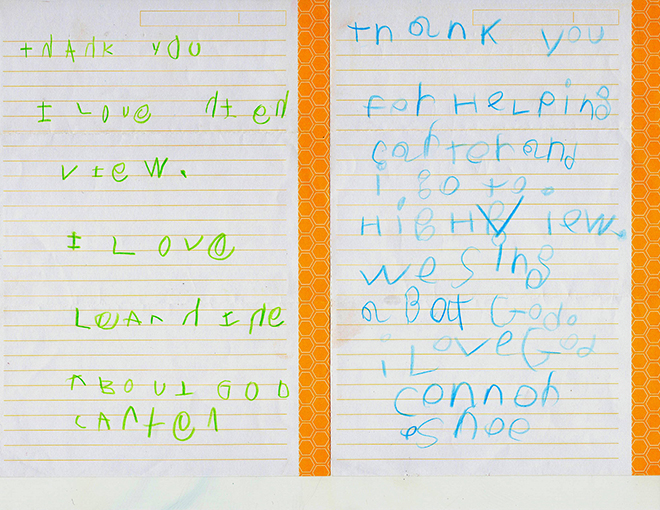 tHAnk you
I Love HIGH
VIeW.
I Love
LeArnIng
ABOUT GOD
CArter
thank you
for HeLping
carter and
i go to.
HiGHView.
we sing
a Bout God.
i Love God
connor
shoe